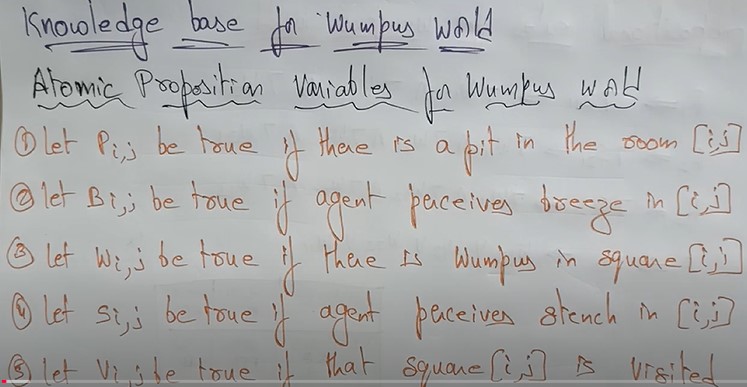 Knowledge base for Wumpus world
Atomic Proposition Variables for Wumpus world
① let Pi,j be true if there is a pit in the room [i,j]
② let Bi,j be true if agent perceives breeze in [i,j]
③ let Wi,j be true if there is Wumpus in square [i,j]
④ let Si,j be true if agent perceives stench in [i,j]
⑤ let Vi,j be true if that square [i,j] is visited